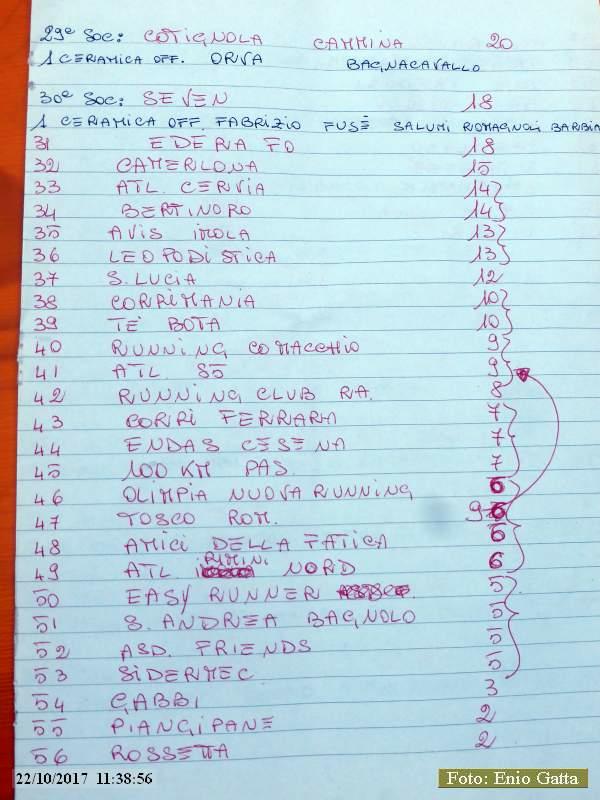 29ª SOC: COTIGNOLA CAMMINA 20
1 CERAMICA OFF. ORVA BAGNACAVALLO
30ª SOC: SEVEN 18
1 CERAMICA OFF. FABRIZIO FUSÉ SALUMI ROMAGNOLI BARBIA
31 EDERA FO 18
32 CAMERLONA 15
33 ATL. CERVIA 14
34 BERTINORO 14
35 AVIS IMOLA 13
36 LEOPODISTICA 13
37 S. LUCIA 12
38 CORRIMANIA 10
39 TE BOTA 10
40 RUNNING COMACCHIO 9
41 ATL. 85 9
42 RUNNING CLUB RA. 8
43 CORRI FERRARA 7
44 ENDAS CESENA 7
45 100 KM PAS. 7
46 OLIMPIA NUOVA RUNNING 6
47 TOSCO ROM. 9
48 AMICI DELLA FATICA 6
49 ATL RIMINI NORD 6
50 EASY RUNNER 5
51 S. ANDREA BAGNOLO 5
52 ASD. FRIENDS 5
53 SIDERMEC 5
54 GABBI 3
55 PIANGIPANE 2
56 ROSSETTA 2
22/10/2017 11:38:56
Foto: Enio Gatta